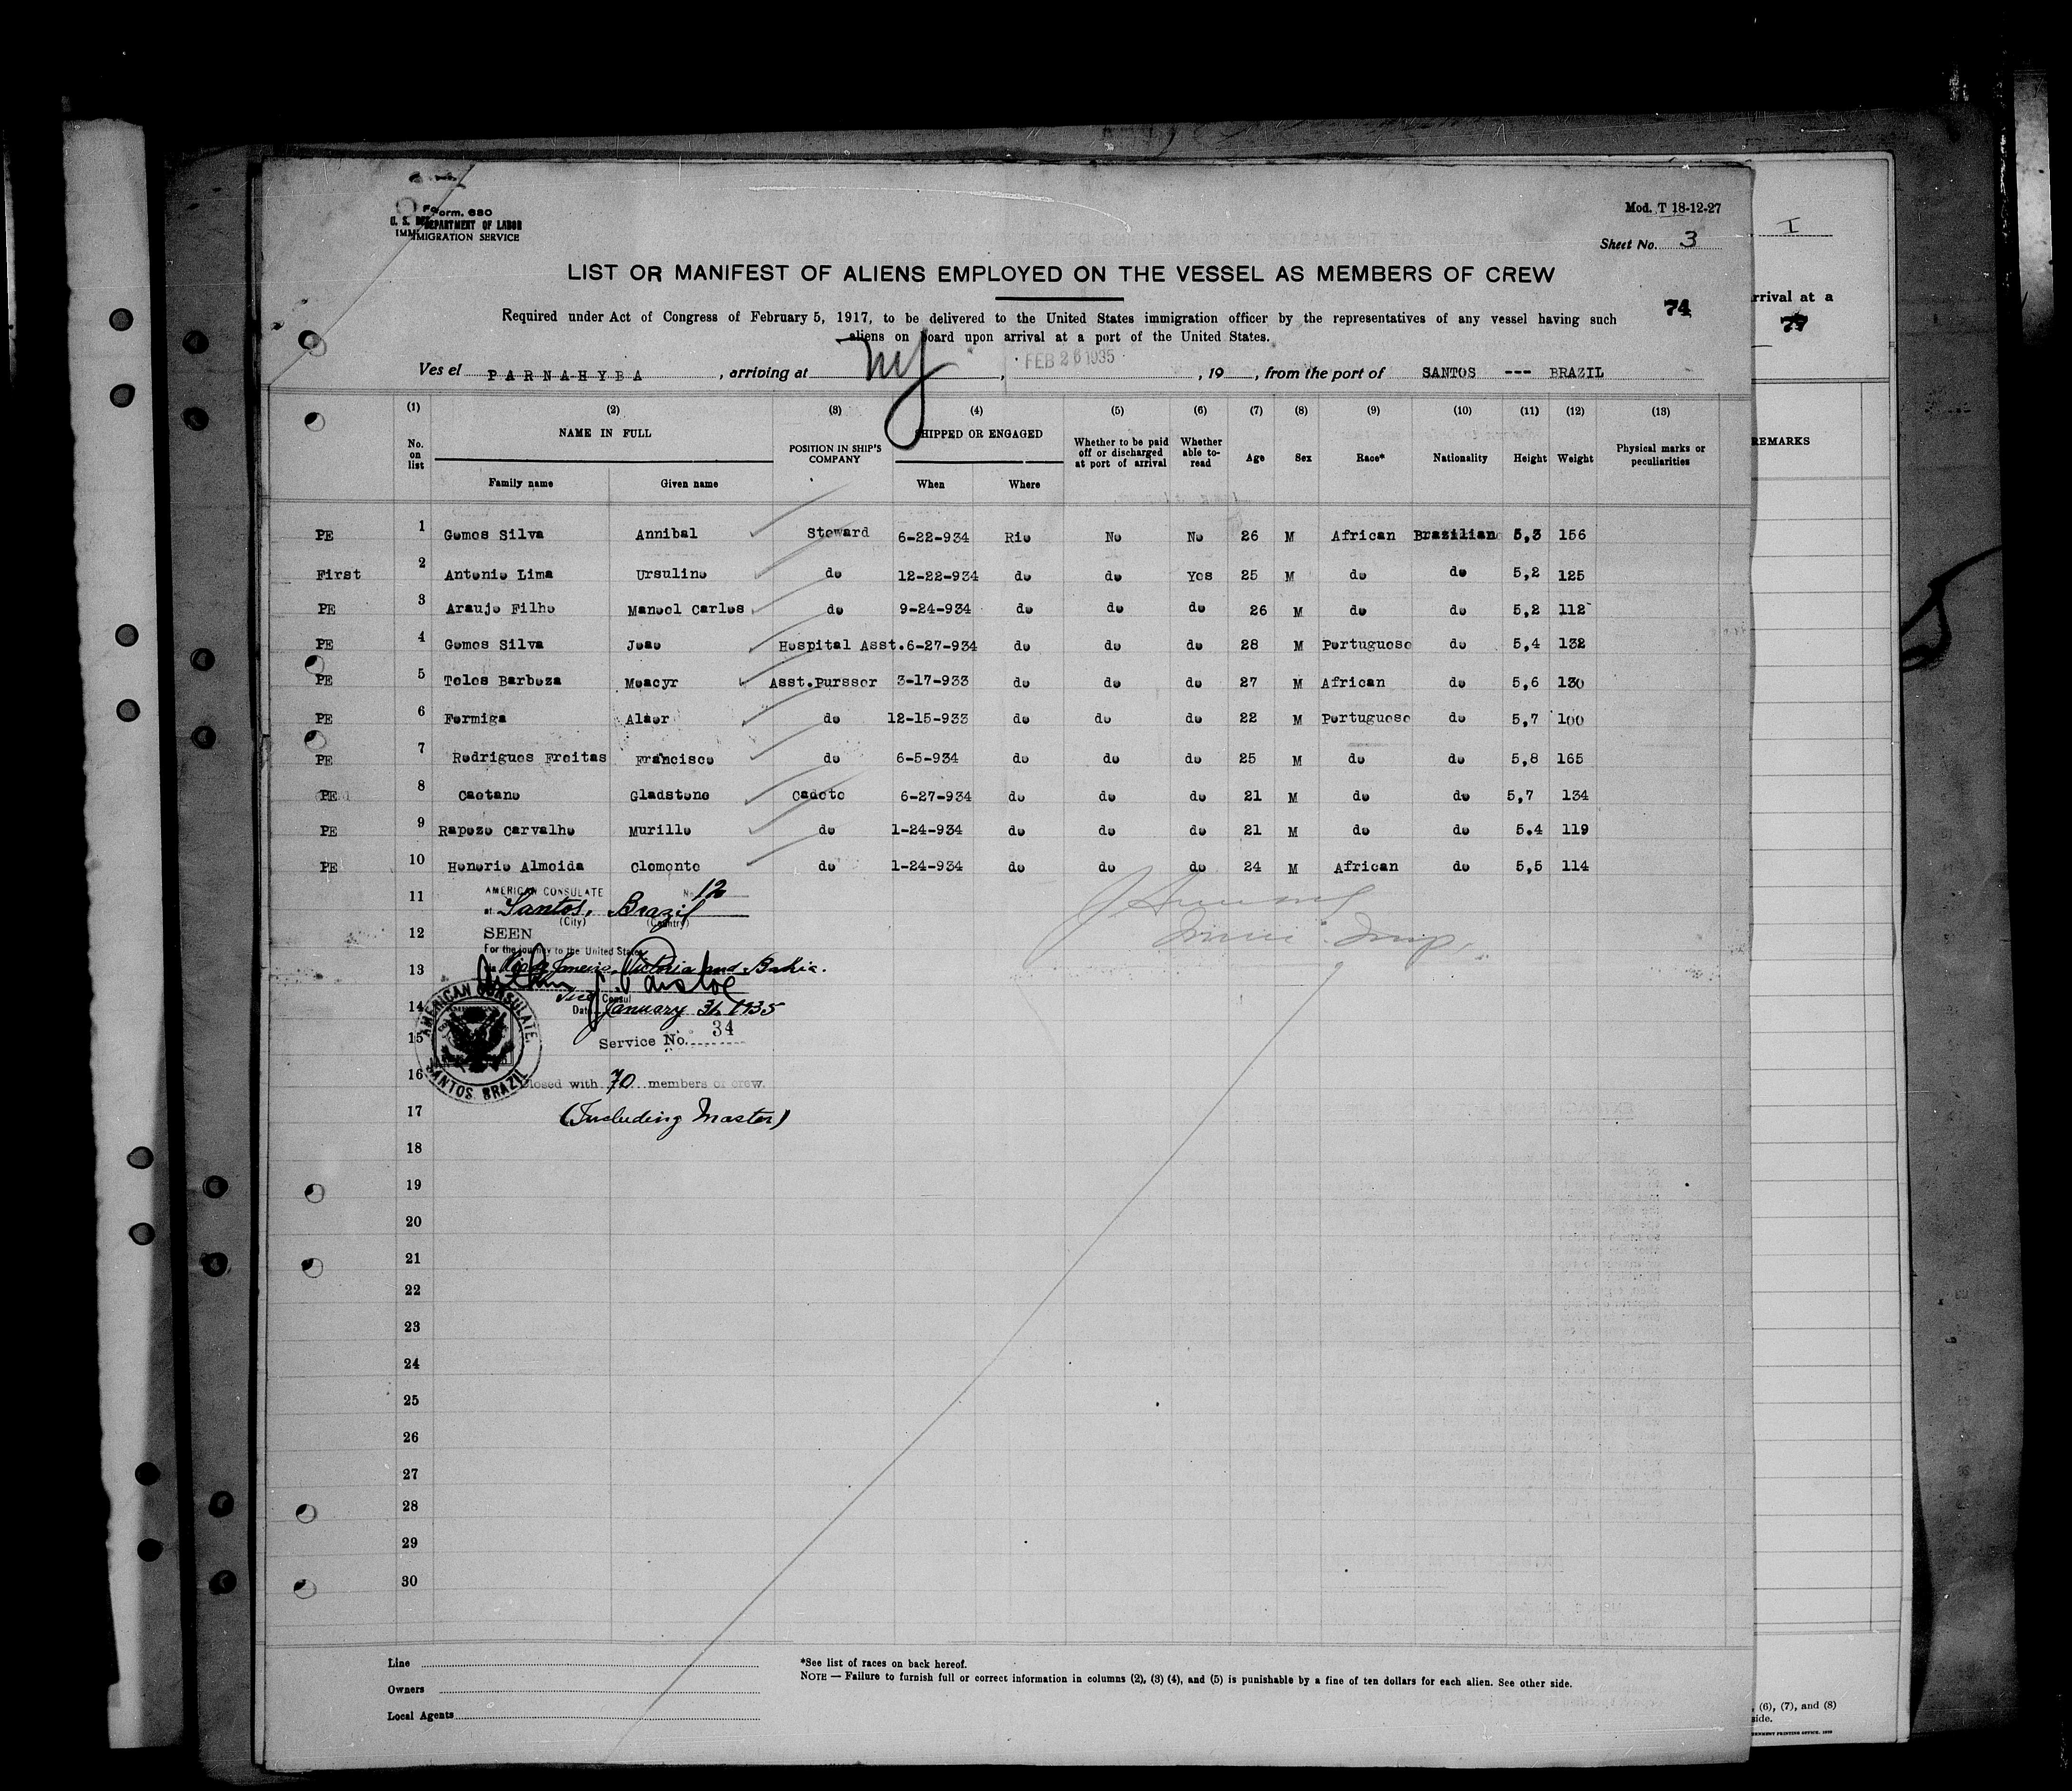 Form. 680
U. S. DEPARTMENT OF LABOR
IMMIGRATION SERVICE
Mod. T 18-12-27
Sheet No. 3
I
LIST OR MANIFEST OF ALIENS EMPLOYED ON THE VESSEL AS MEMBERS OF CREW
rrival at a
74
77
Required under Act of Congress of February 5, 1917, to be delivered to the United States immigration officer by the representatives of any vessel having such
aliens on board upon arrival at a port of the United States.
Ves el PARNAHYBA, arriving at NY, FEB 26 1935, 19 , from the port of SANTOS --- BRAZIL
(1) (2) (3) (4) (5) (6) (7) (8) (9) (10) (11) (12) (13)
No. on list NAME IN FULL Family name Given name POSITION IN SHIP'S COMPANY SHIPPED OR ENGAGED When Where Whether to be paid off or discharged at port of arrival Whether able to- read Age Sex Race* Nationality Height Weight Physical marks or peculiarities
REMARKS
PE 1 Gomes Silva Annibal Steward 6-22-934 Rio No No 26 M African Brazilian 5,3 156
First 2 Antonio Lima Ursulino do 12-22-934 do do Yes 25 M do do 5,2 125
PE 3 Araujo Filho Manoel Carlos do 9-24-934 do do do 26 M do do 5,2 112
PE 4 Gomes Silva Joao Hospital Asst. 6-27-934 do do do 28 M Portuguese do 5,4 132
PE 5 Teles Barboza Moacyr Asst.Purssor 3-17-933 do do do 27 M African do 5,6 130
PE 6 Formiga Alaor do 12-15-933 do do do 22 M Portuguese do 5,7 100
PE 7 Rodrigues Freitas Francisco do 6-5-934 do do do 25 M do do 5,8 165
PE 8 Caetano Gladstone Cadete 6-27-934 do do do 21 M do do 5,7 134
PE 9 Rapozo Carvalho Murillo do 1-24-934 do do do 21 M do do 5.4 119
PE 10 Honorio Almeida Clemente do 1-24-934 do do do 24 M African do 5,5 114
11
AMERICAN CONSULATE No. 12
at Santos, Brazil
(City) (Country)
12
SEEN
For the journey to the United States
13
via Rio de Janeiro, Victoria and Bahia.
Consul
14
Date January 31, 1935
15
Service No. 34
AMERICAN CONSULATE. SANTOS BRAZIL
16
Closed with 70 members of crew.
17
(Including Master)
18
19
20
21
22
23
24
25
26
27
28
29
30
Line
Owners
Local Agents
*See list of races on back hereof.
NOTE — Failure to furnish full or correct information in columns (2), (3) (4), and (5) is punishable by a fine of ten dollars for each alien. See other side.
(6), (7), and (8)
side.